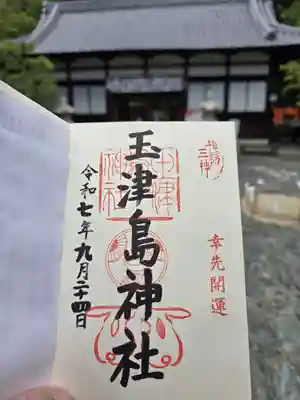 和歌三神
幸先開運
玉津島神社
令和七年九月二十四日